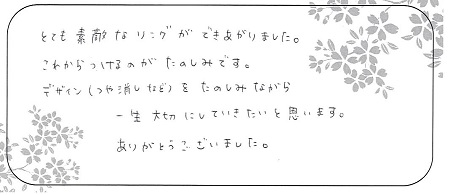 とても素敵なリングができあがりました。
これからつけるのがたのしみです。
デザイン(つや消しなど)をたのしみながら
一生大切にしていきたいと思います。
ありがとうございました。